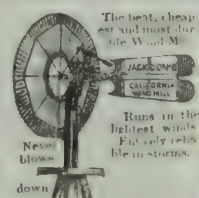 The best, cheap
est and most dur
able Wind Mill
JACKSON'S
CALIFORNIA
WIND MILL
Runs in the
lightest winds
Entirely relia
ble in storms.
Never
blows
down